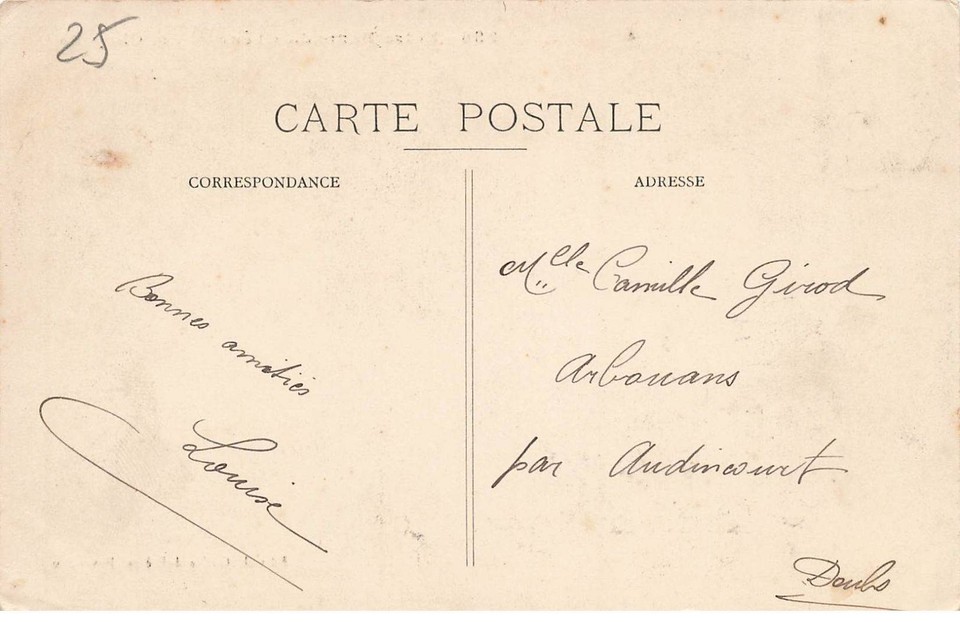 25
CARTE POSTALE
CORRESPONDANCE
Bonnes amitiés
Louise
ADRESSE
Mlle Camille Girod
Arbouans
par Audincourt
Doubs